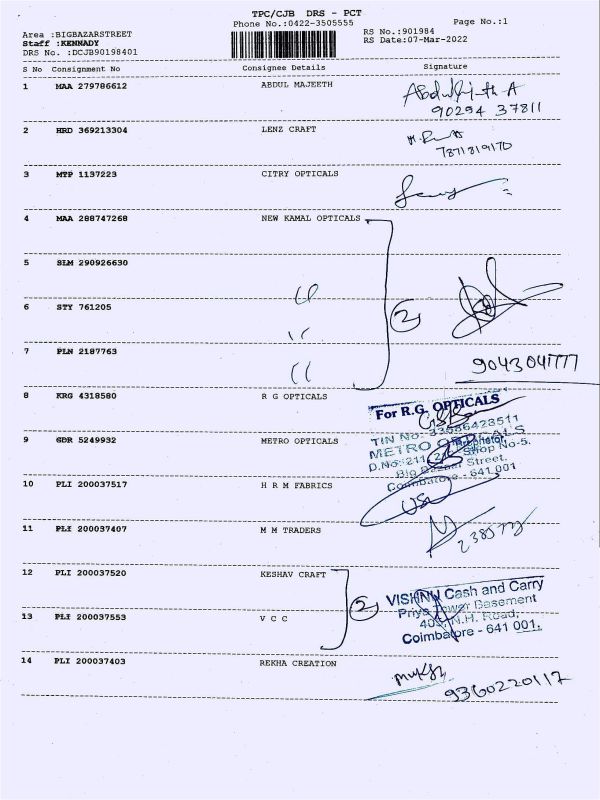 TPC/CJB DRS - PCT
Phone No.:0422-3505555
Page No.:1
Area :BIGBAZARSTREET
Staff :KENNADY
DRS No. :DCJB90198401
RS No.:901984
RS Date:07-Mar-2022
S No Consignment No Consignee Details Signature
1 MAA 279786612 ABDUL MAJEETH
90294 37811
2 HRD 369213304 LENZ CRAFT
7871819170
3 MTP 1137223 CITRY OPTICALS
4 MAA 288747268 NEW KAMAL OPTICALS
5 SLM 290926630
6 STY 761205
2
7 PLN 2187763
9043041777
8 KRG 4318580 R G OPTICALS
For R.G. OPTICALS
9 GDR 5249932 METRO OPTICALS
TIN No: 33656423511
METRO OPTICALS
Proprietor
Shop No-5,
Big Bazaar Street,
Coimbatore - 641 001
10 PLI 200037517 H R M FABRICS
11 PLI 200037407 M M TRADERS
12 PLI 200037520 KESHAV CRAFT
2
VISHNU Cash and Carry
Priya Tower Basement
N.H. Road,
Coimbatore - 641 001.
13 PLI 200037553 V C C
14 PLI 200037403 REKHA CREATION
9360220117